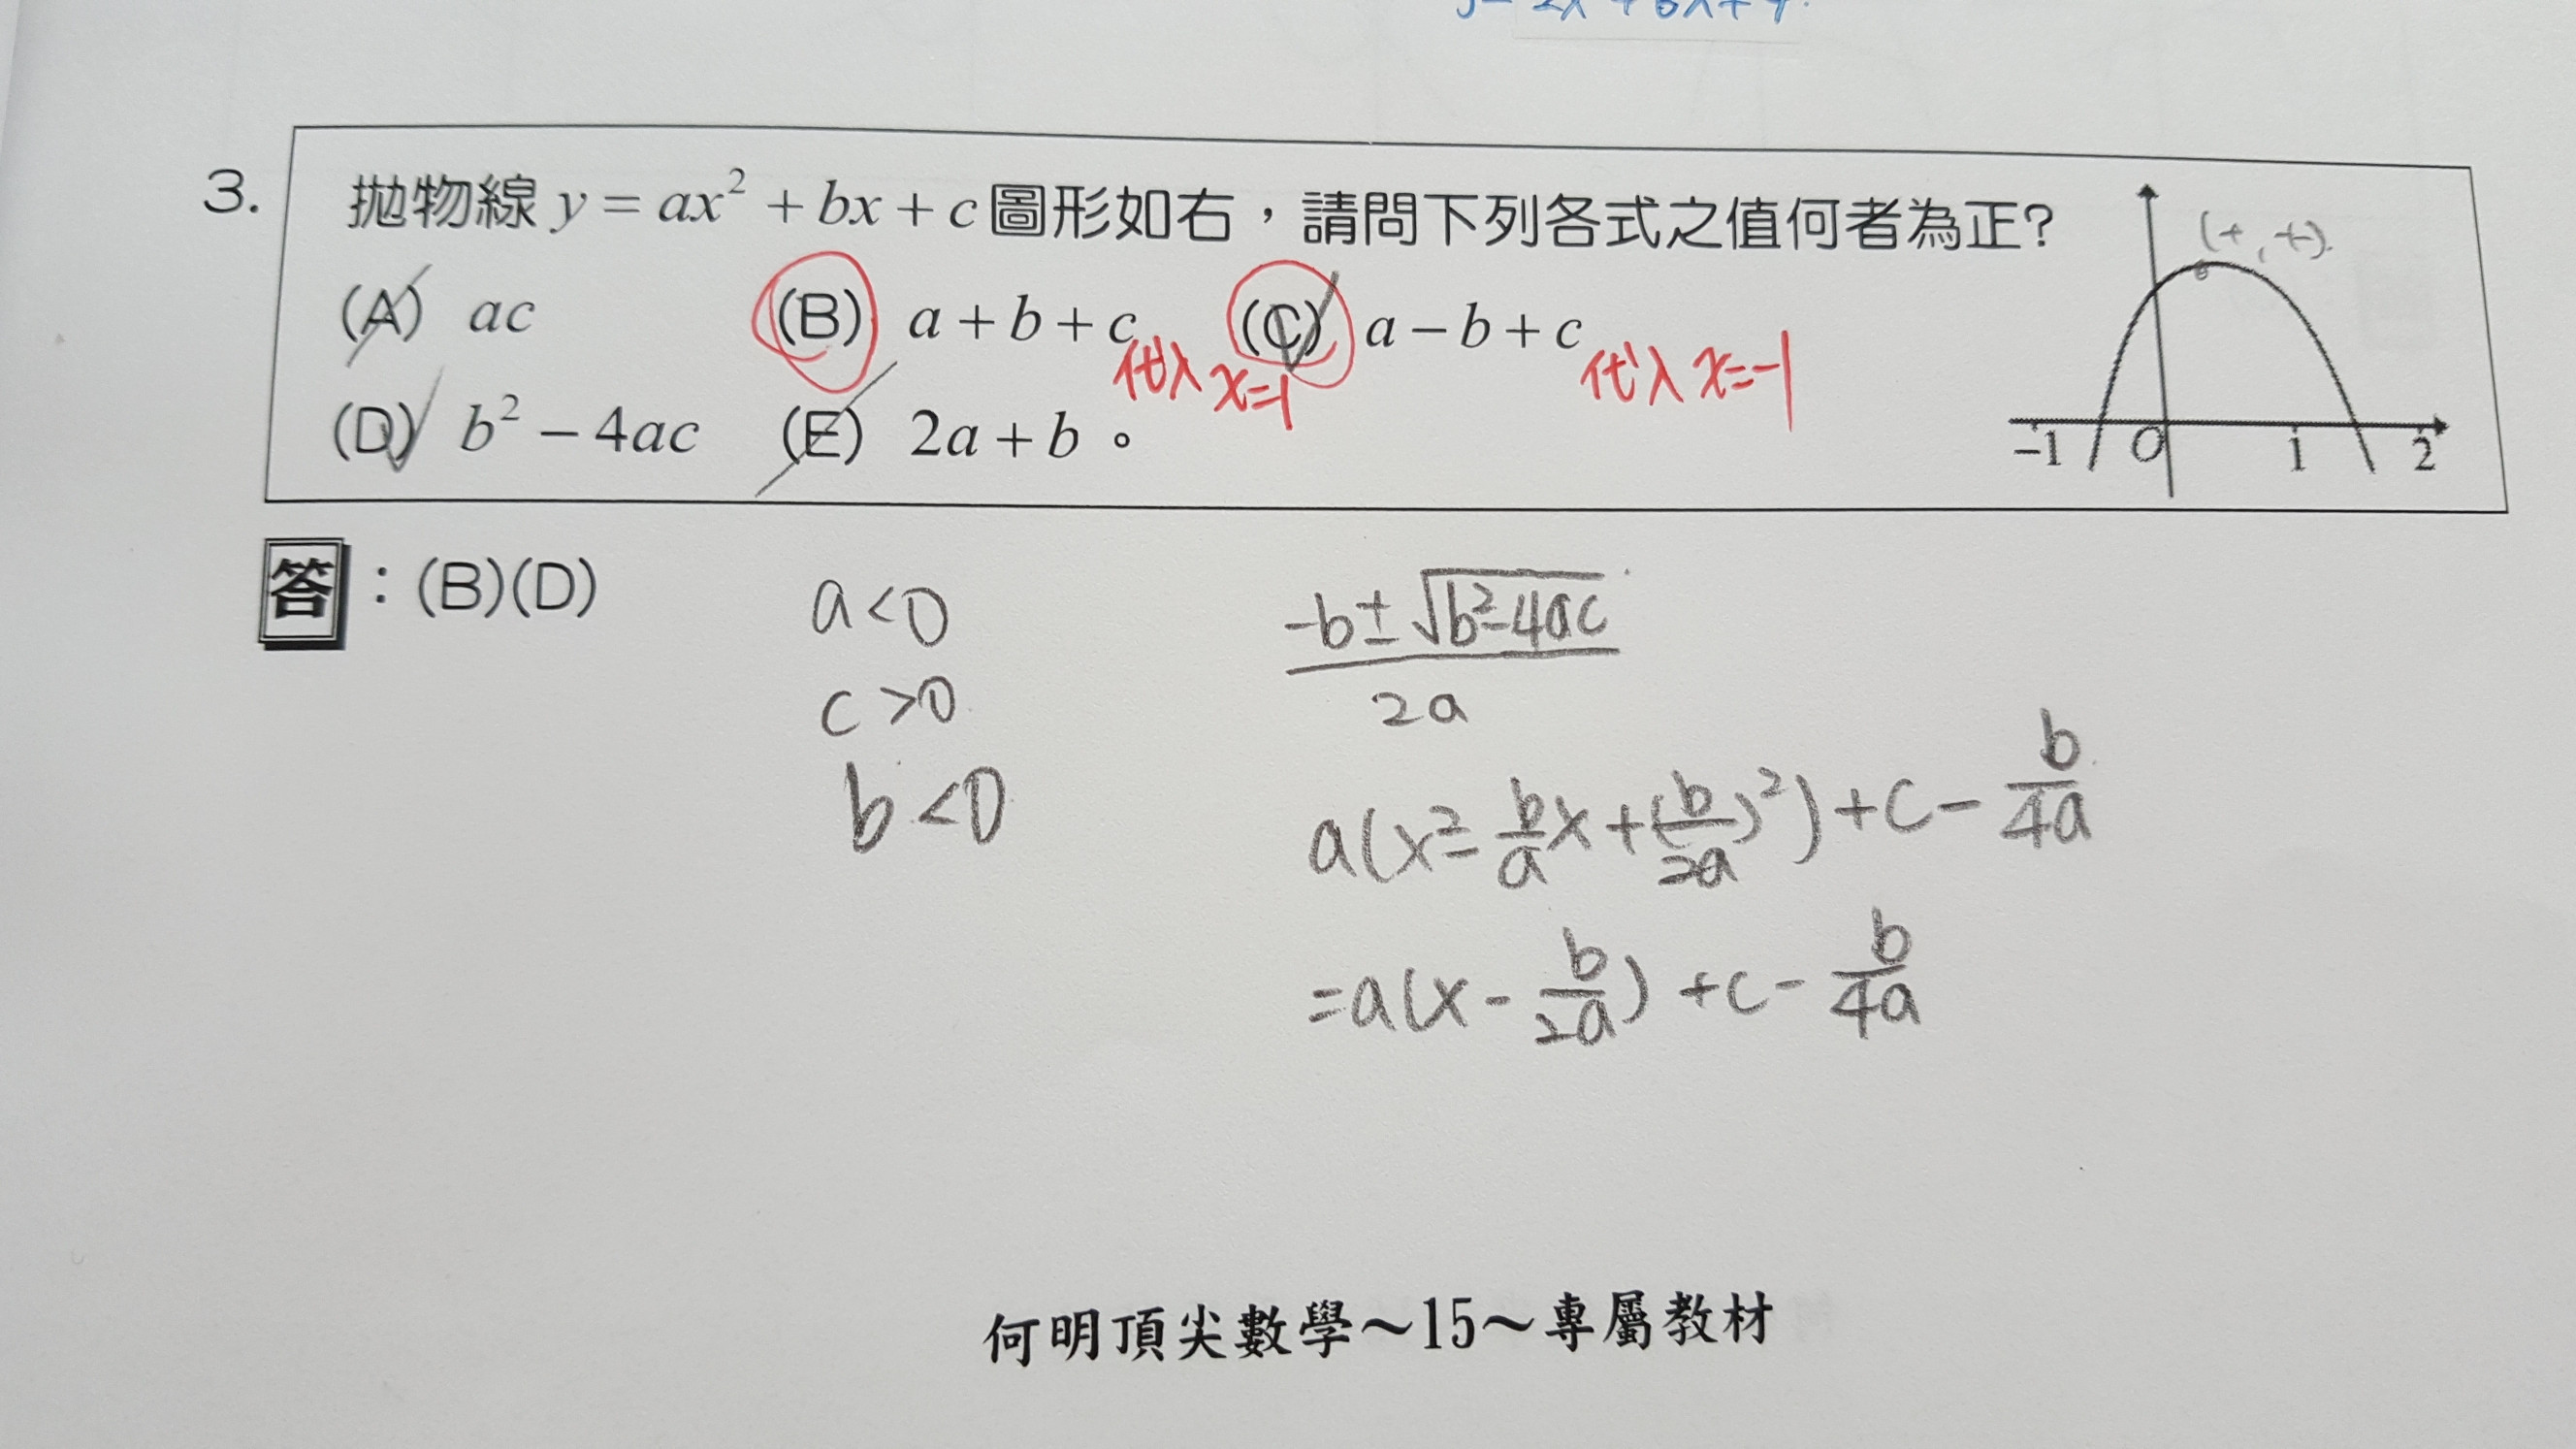 3.
拋物線 y = ax² + bx + c 圖形如右，請問下列各式之值何者為正?
(A) ac (B) a + b + c (C) a − b + c
代入 x=1
代入 x=−1
(D) b² − 4ac (E) 2a + b。
(+,+)
−1 O 1 2
答：(B)(D)
a<0
c>0
b<0
(-b±√(b²-4ac))/(2a)
a(x²-(b/a)x+(b/2a)²)+c-b/4a
=a(x-b/2a)+c-b/4a
何明頂尖數學～15～專屬教材